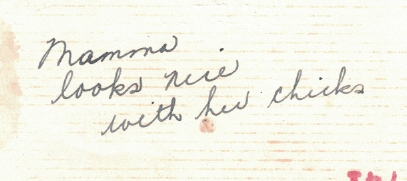 Mamma
looks nice
with her chicks